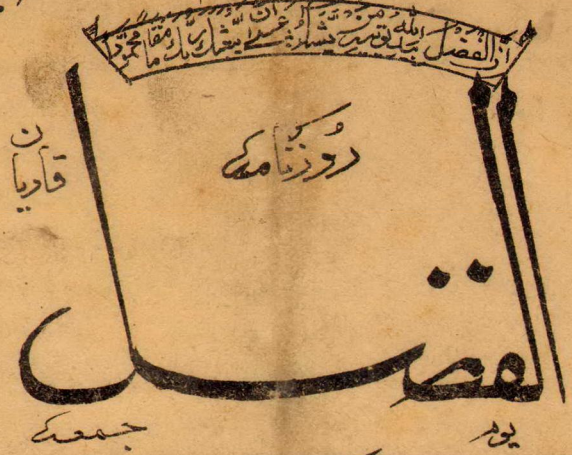 ان الفضل بید اللہ یوتیہ من یشاء عسی ان یبعثک ربک مقاما محمودا
روزنامہ
قادیان
الفضل
یوم جمعہ